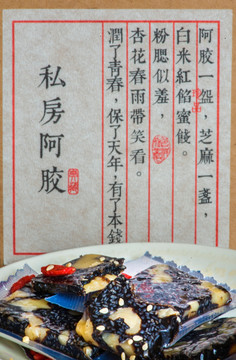 阿胶一盌，芝麻一盞，
白米紅餡蜜餞。
粉腮似羞，
杏花春雨帶笑看。
潤了青春，保了天年，有了本錢
私房阿胶